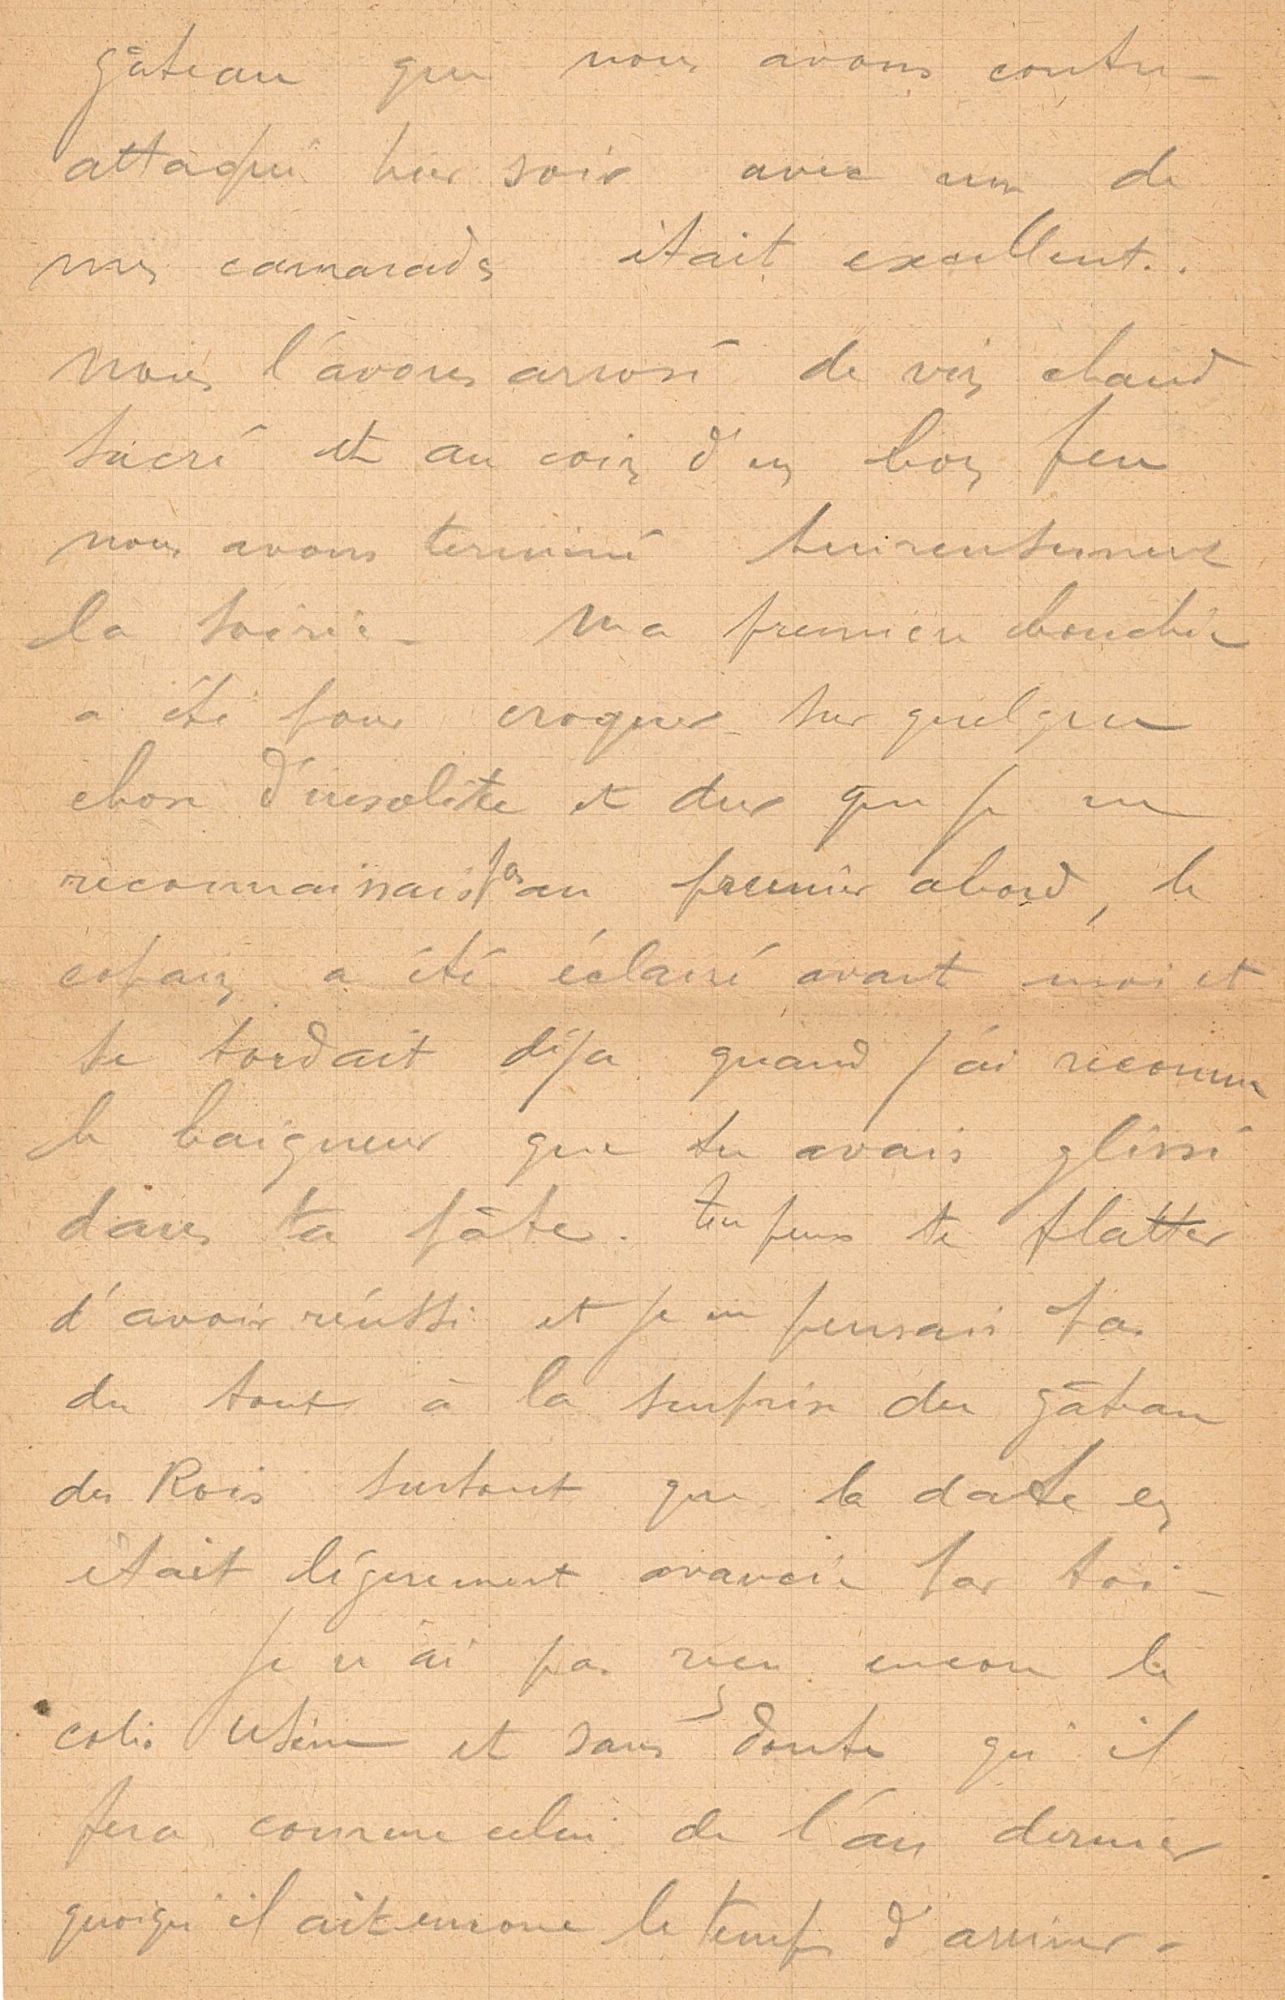 gâteau que nous avons contre-
attaqué hier soir avec un de
mes camarades était excellent..
Nous l'avons arrosé de vin chaud
sucré et au coin d'un bon feu
nous avons terminé heureusement
la soirée - Ma première bouchée
a été pour croquer sur quelque
chose d'insolite et dur que je ne
reconnaissais pas au premier abord, le
copain a été éclairé avant moi et
se tordait déja quand j'ai reconnu
le baigneur que tu avais glissé
dans ta pâte. Tu peux te flatter
d'avoir réussi et je ne pensais pas
du tout à la surprise du gâteau
des Rois surtout que la date en
était légerement avancée par toi -
Je n'ai pas reçu encore le
colis Usine et sans doute qu'il
fera comme celui de l'an dernier
quoiqu'il ait encore le temps d'arriver -